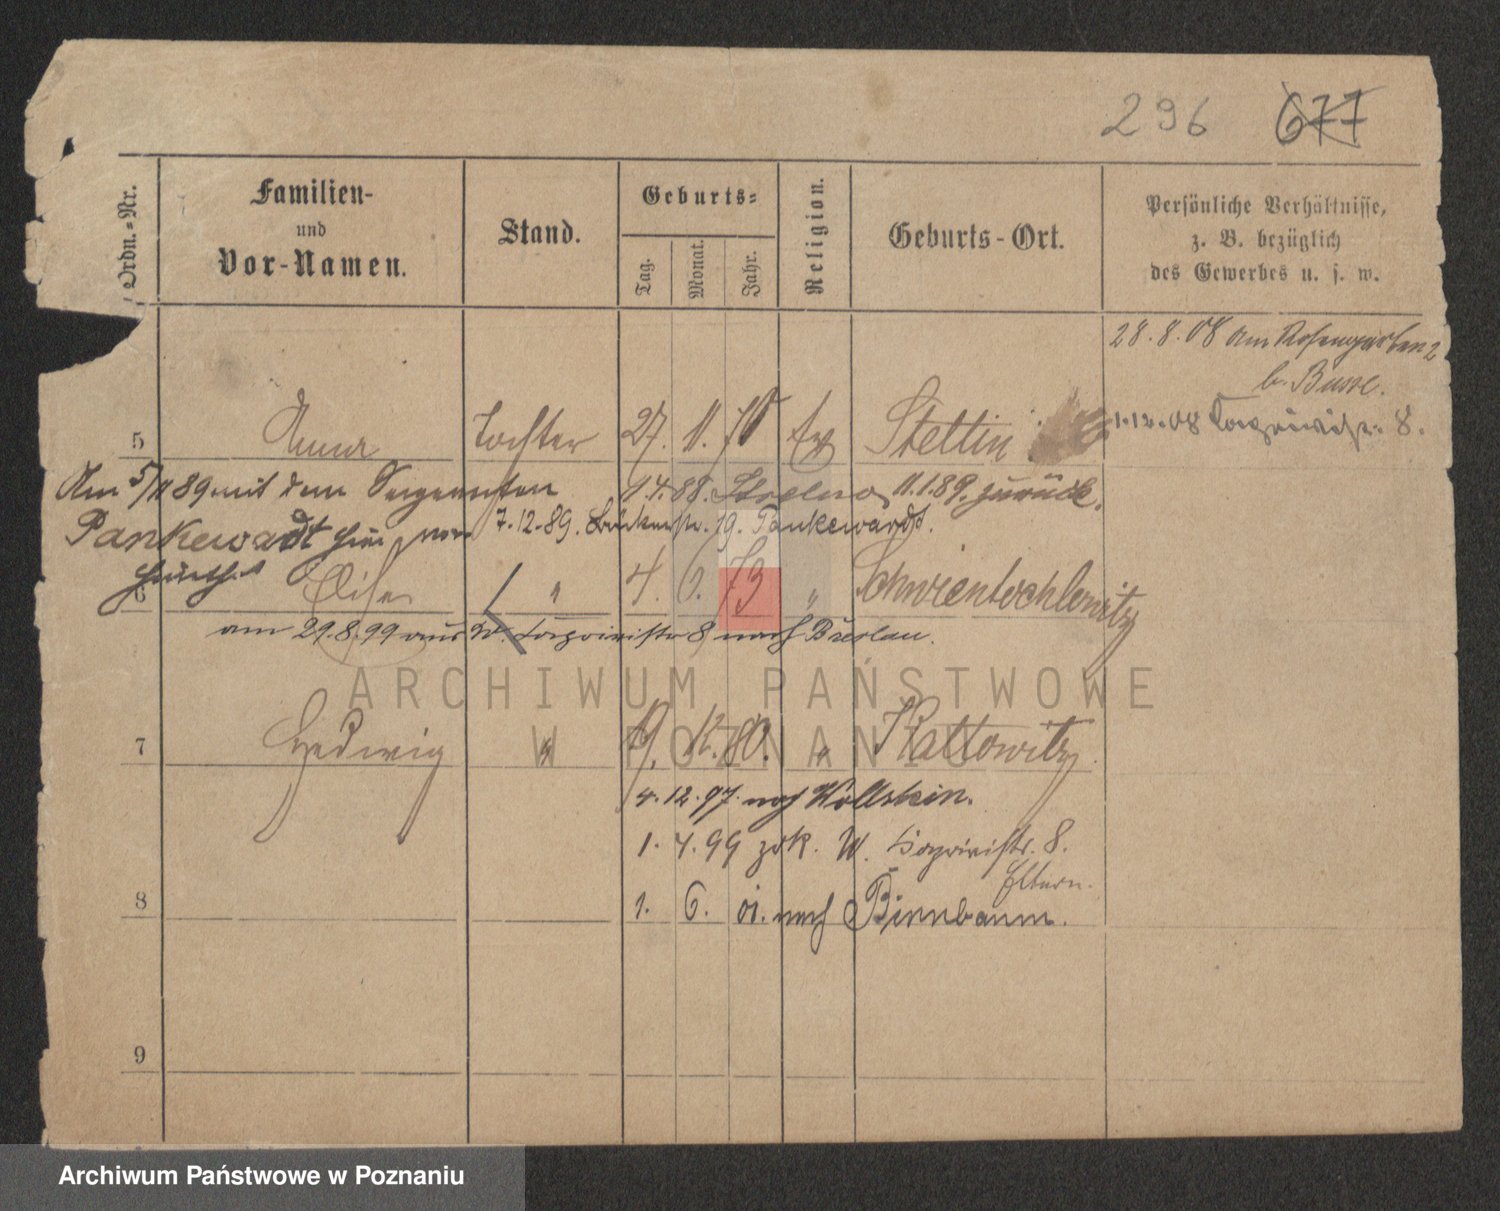 296 677
Ordn.-Nr.
Familien-
und
Vor-Namen.
Stand.
Geburts-
Tag.
Monat.
Jahr.
Religion.
Geburts-Ort.
Persönliche Verhältnisse,
z. B. bezüglich
des Gewerbes u. s. w.
28.8.08 Am Rosengarten 2
b. Busse.
1.12.08 8.
5 Anna Tochter 27. 11. 70 Ev Stettin
Am 5/11 89 mit dem Sergeanten 1.4.88. Strelno 11.1.89. zurück.
Pankewadt 7.12.89. 19. Pankewardt.
6 Elise " 4. 6. 73 " Schwientochlowitz
am 29.8.99 aus W. 8 nach Breslau.
7 Hedwig " 19. 12. 80. " Kattowitz.
4.12.97. nach Wollstein.
1. 4. 99 zrk. W. 8.
Eltern.
8 1. 6. 01. nach Birnbaum.
9
ARCHIWUM PAŃSTWOWE
W POZNANIU
Archiwum Państwowe w Poznaniu